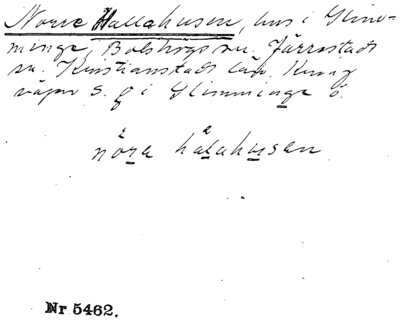 Norre Hallahusen, hus i Glim-
minge, Bolshögs sn. Järrestads
Kristianstads län.
s. i Glimminge
nöra halahusen
Nr 5462.